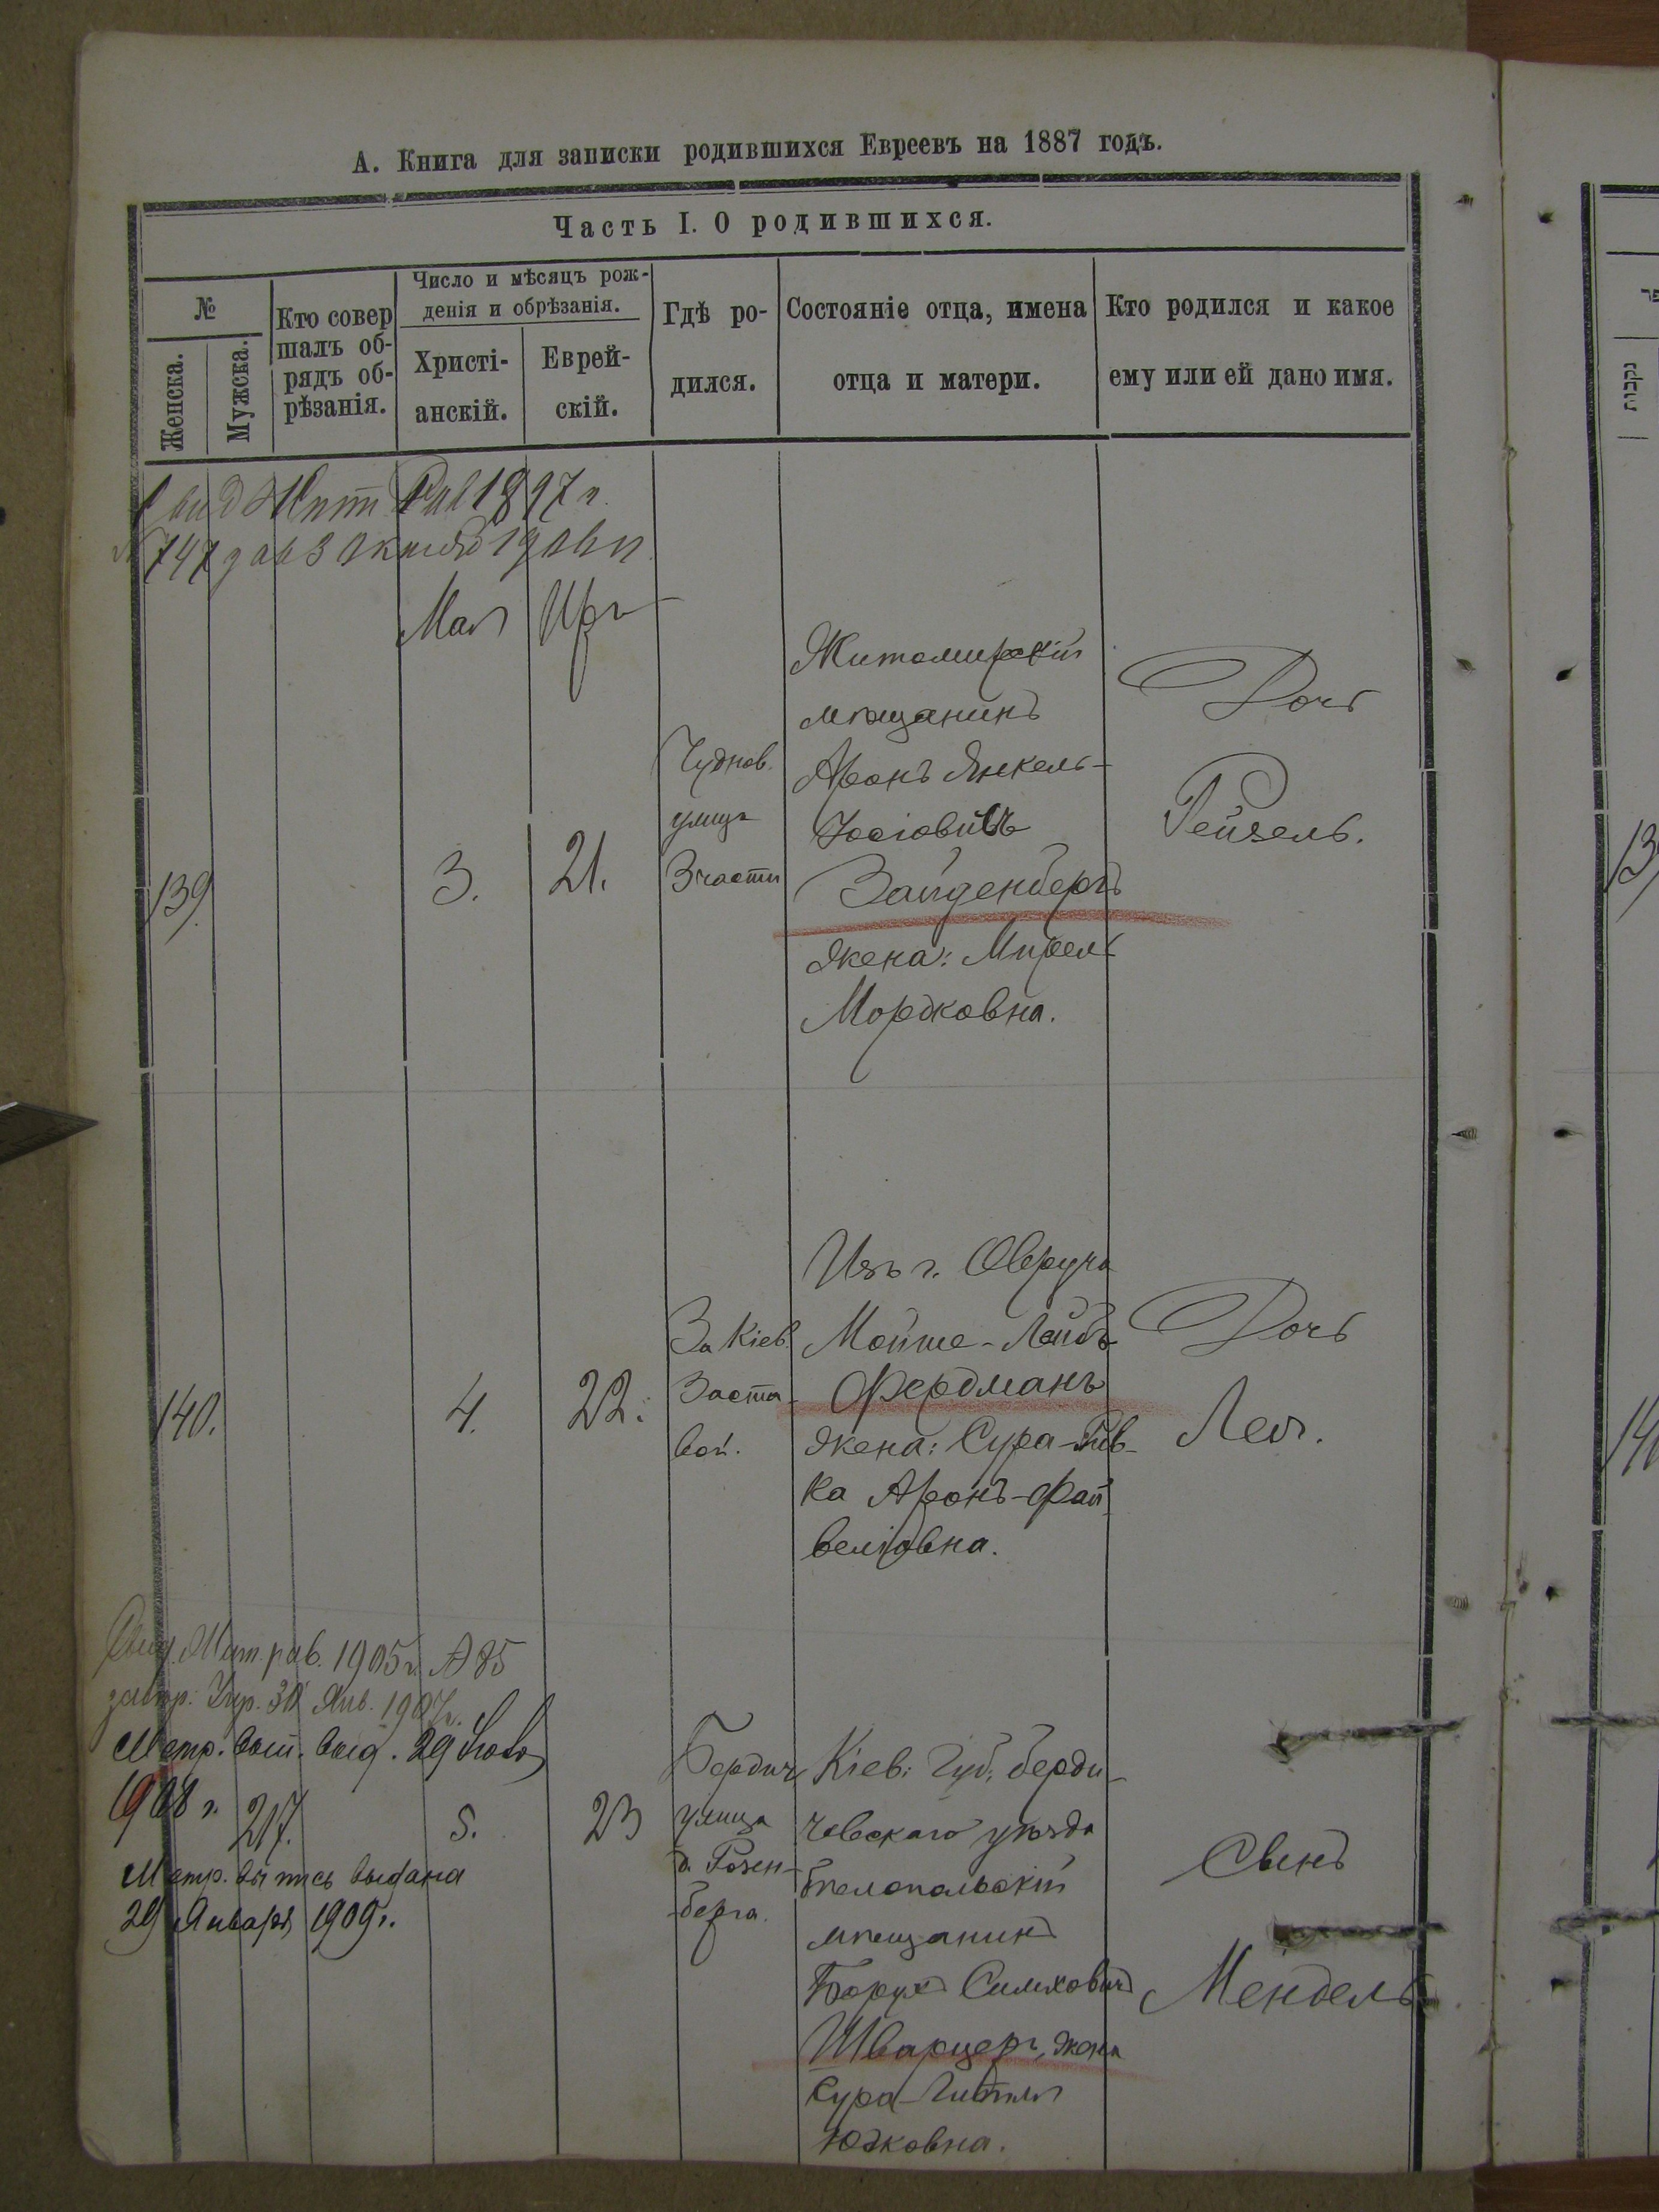 А. Книга для записки родившихся Евреевъ на 1887 годъ.
Часть I. О родившихся.
№
Женска.
Мужска.
Кто совер
шалъ об-
рядъ об-
рѣзанія.
Число и мѣсяцъ рож-
денія и обрѣзанія.
Христі-
анскій.
Еврей-
скій.
Гдѣ ро-
дился.
Состояніе отца, имена
отца и матери.
Кто родился и какое
ему или ей дано имя.
1897 г.
747
Мая
139
3.
21.
Чуднов.
улица
3 части
Житомирскій
мѣщанинъ
Аронъ Янкель-
Зайденбергъ
жена: Мирель
Мордковна.
Дочь
Рейзель.
140.
4.
22.
За Кіев.
Заста-
вой.
Изъ г. Овруча
Мойше-Лейбъ
Фердманъ
жена: Сура-Рив-
ка Аронъ-Фай
веліовна.
Дочь
Лея.
рав. 1905 г. № 85
30 Янв. 1907 г.
Метр. вып. выд. 29
1908 г.
217.
5.
23
Метр. выпись выдана
29 Января 1909 г.
Бердич
улица
д. Розен-
берга.
Кіев. Губ. берди-
чевскаго уѣзда
бѣлопольскій
мѣщанинъ
Борухъ Симховичъ
Шварцеръ, жена
Сура-Гитля
Юдковна.
Сынъ
Мендель
נקבות